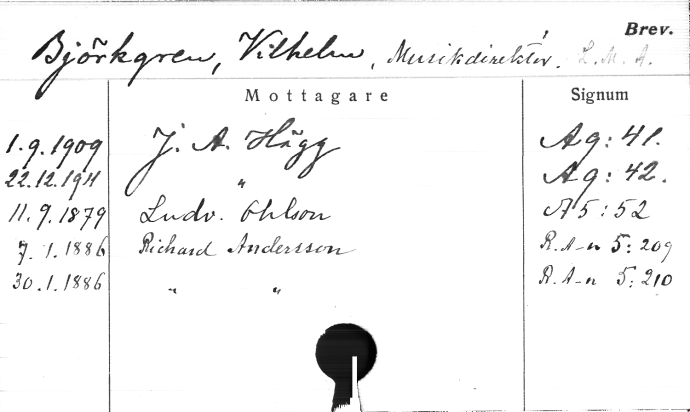 Brev.
Björkgren, Vilhelm, Musikdirektör. L. M. A.
Mottagare Signum
1.9.1909 J. A. Hägg Ag: 41.
22.12.1911 " Ag: 42.
11.9.1879 Ludv. Ohlson A5: 52
7.1.1886 Richard Andersson R.A-n 5: 209
30.1.1886 " " R.A-n 5: 210